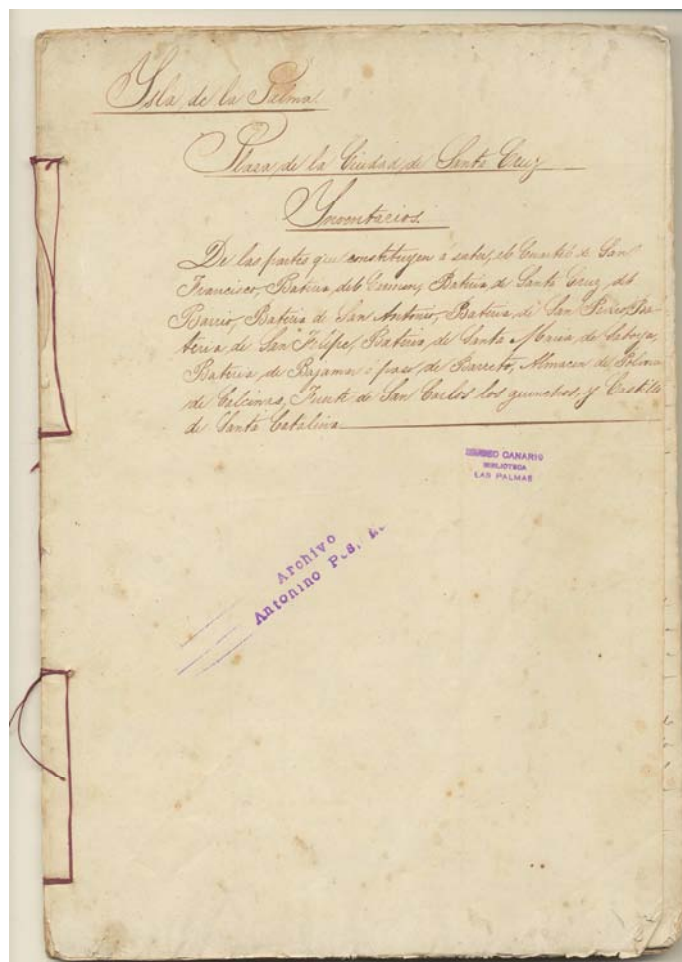 Isla de la Palma
Plaza de la Ciudad de Santa Cruz
Inventarios.
De las partes que constituyen á saber, el Cuartel de San
Francisco, Bateria del Carmen, Bateria de Santa Cruz del
Barrio, Bateria de San Antonio, Bateria de San Pedro, Ba-
teria de San Felipe, Bateria de Santa Maria de Saboya,
Bateria de Bajamar ó paso de Barreto, Almacen de Polvora
de Calcinas, Fuerte de San Carlos los guinchos, y Castillo
de Santa Catalina
MUSEO CANARIO
BIBLIOTECA
LAS PALMAS
Archivo
Antonino